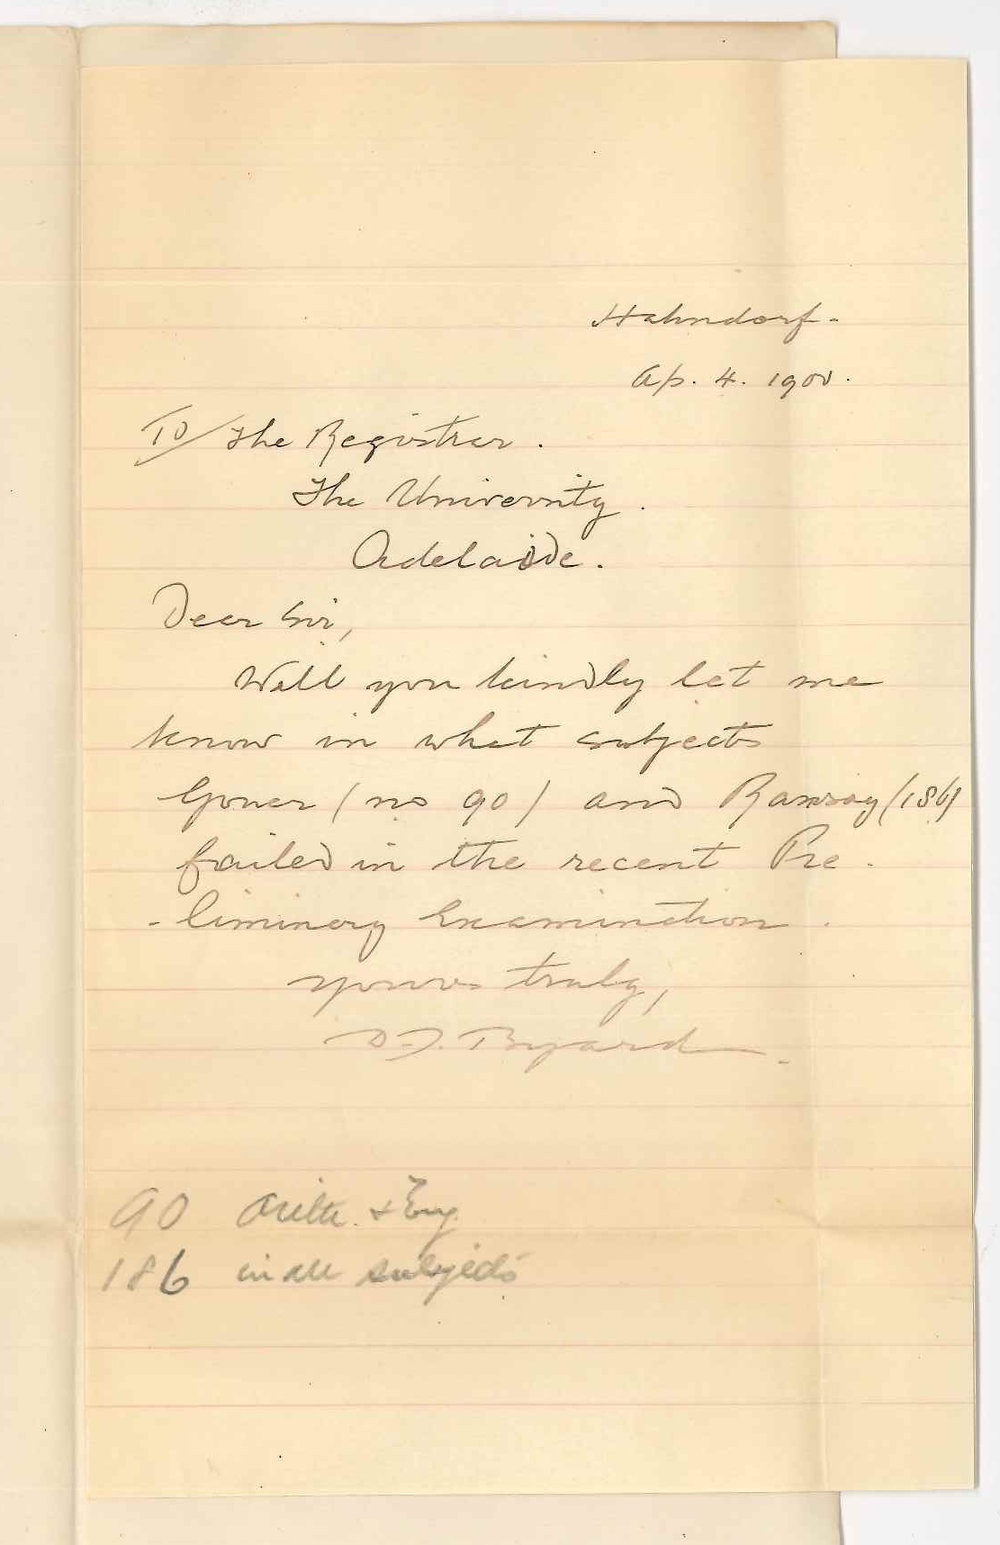 Hahndorf.
Ap. 4. 1900.
To/ The Registrar.
The University.
Adelaide.
Dear Sir,
Will you kindly let me
know in what subjects
(no 90) and Ramsay (186)
failed in the recent Pre
-liminary Examination.
Yours truly,
D. J. Byard.
90 Arith. & Eng.
186 in all subjects